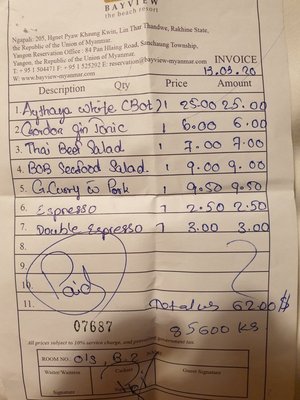 BAYVIEW
the beach resort
Ngapali: 205, Hgnet Pyaw Khaung Kwin, Lin Thar Thandwe, Rakhine State,
the Republic of the Union of Myanmar.
Yangon Reservation Office : 84 Pan Hlaing Road, Sanchaung Township,
Yangon, the Republic of the Union of Myanmar.
T: + 95 1 504471 F: + 95 1 525292 E: reservation@bayview-myanmar.com
W: www.bayview-myanmar.com INVOICE
13.03.20
Description Qty Price Amount
1. Aythaya white (Bot) 1 25.00 25.00
2. Gordon gin Tonic 1 6.00 6.00
3. Thai Beef Salad 1 7.00 7.00
4. BOB Seafood Salad 1 9.00 9.00
5. G.Curry w Pork 1 9.50 9.50
6. Espresso 1 2.50 2.50
7. Double Espresso 1 3.00 3.00
8.
9.
10. Paid
11. Total us 62.00 $
07687 85600 Ks
All prices subject to 10% service charge, and government tax
ROOM NO: 013, B-2
Waiter/Waitress Cashier Guest Signature
Signature